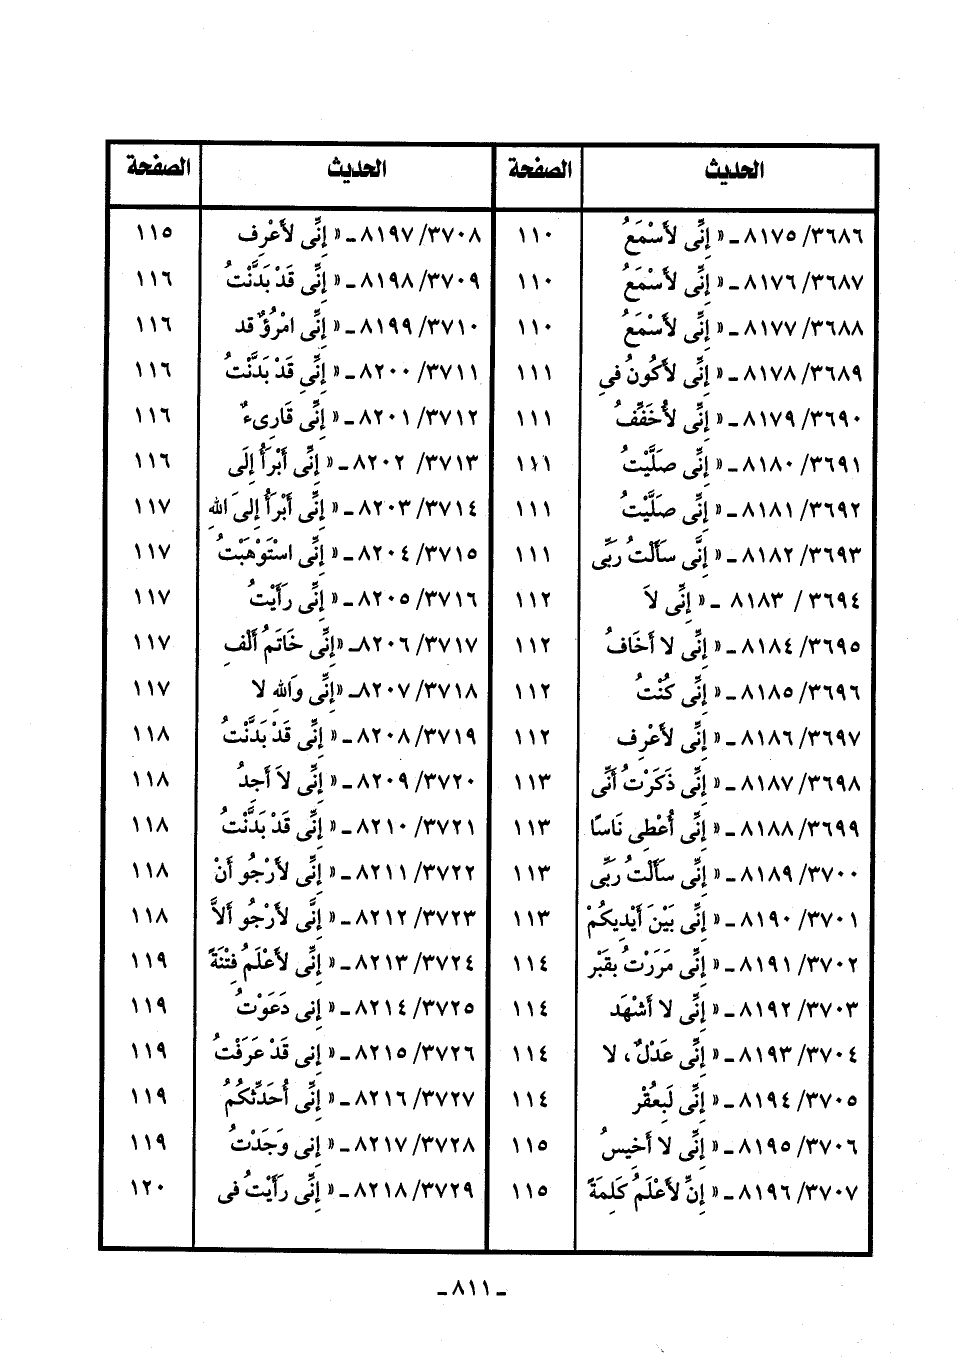 الحديث الصفحة
٨١٧٥/٣٦٨٦ ـ « إِنِّى لأَسْمَعُ ١١٠
٨١٧٦/٣٦٨٧ ـ « إِنِّى لأَسْمَعُ ١١٠
٨١٧٧/٣٦٨٨ ـ « إِنِّى لأَسْمَعُ ١١٠
٨١٧٨/٣٦٨٩ ـ « إِنِّى لأَكُونُ فِي ١١١
٨١٧٩/٣٦٩٠ ـ « إِنِّى لأُخَفِّفُ ١١١
٨١٨٠/٣٦٩١ ـ « إِنِّى صَلَّيْتُ ١١١
٨١٨١/٣٦٩٢ ـ « إِنِّى صَلَّيْتُ ١١١
٨١٨٢/٣٦٩٣ ـ « إِنَّى سَأَلْتُ رَبِّى ١١١
٨١٨٣ /٣٦٩٤ ـ « إِنِّى لاَ ١١٢
٨١٨٤/٣٦٩٥ ـ « إِنِّى لا أَخَافُ ١١٢
٨١٨٥/٣٦٩٦ ـ « إِنِّى كُنْتُ ١١٢
٨١٨٦/٣٦٩٧ ـ « إِنِّى لأَعْرِف ١١٢
٨١٨٧/٣٦٩٨ ـ « إِنِّى ذَكَرْتُ أَنِّى ١١٣
٨١٨٨/٣٦٩٩ ـ « إِنِّى أُعْطِى نَاسًا ١١٣
٨١٨٩/٣٧٠٠ ـ « إِنِّى سَأَلْتُ رَبِّى ١١٣
٨١٩٠/٣٧٠١ ـ « إِنِّى بَيْنَ أَيْدِيكُمْ ١١٣
٨١٩١/٣٧٠٢ ـ « إِنِّى مَرَرْتُ بِقَبْر ١١٤
٨١٩٢/٣٧٠٣ ـ « إِنِّى لا أَشْهَد ١١٤
٨١٩٣/٣٧٠٤ ـ « إِنِّى عَدْلٌ ، لا ١١٤
٨١٩٤/٣٧٠٥ ـ « إِنِّى لَبِعُقْر ١١٤
٨١٩٥/٣٧٠٦ ـ « إِنِّى لا أَخِيسُ ١١٥
٨١٩٦/٣٧٠٧ ـ « إِنِّ لأَعْلَمُ كَلِمَةً ١١٥
الحديث الصفحة
٨١٩٧/٣٧٠٨ ـ « إِنِّى لأَعْرِف ١١٥
٨١٩٨/٣٧٠٩ ـ « إِنِّى قَدْ بَدَّنْتُ ١١٦
٨١٩٩/٣٧١٠ ـ « إِنِّى امْرُؤٌ قد ١١٦
٨٢٠٠/٣٧١١ ـ « إِنِّى قَدْ بَدَّنْتُ ١١٦
٨٢٠١/٣٧١٢ ـ « إِنِّى قَارِىءٌ ١١٦
٨٢٠٢ /٣٧١٣ ـ « إِنِّى أَبْرَأُ إِلَى ١١٦
٨٢٠٣/٣٧١٤ ـ « إِنِّى أَبْرَأُ إِلىَ اللهِ ١١٧
٨٢٠٤/٣٧١٥ ـ « إِنِّى اسْتَوْهَبْتُ ١١٧
٨٢٠٥/٣٧١٦ ـ « إِنِّى رَأَيْتُ ١١٧
٨٢٠٦/٣٧١٧ـ «إِنِّى خَاتَمُ أَلْفِ ١١٧
٨٢٠٧/٣٧١٨ـ «إِنِّى وَاللهِ لا ١١٧
٨٢٠٨/٣٧١٩ ـ « إِنِّى قَدْ بَدَّنْتُ ١١٨
٨٢٠٩/٣٧٢٠ ـ « إِنِّى لاَ أَجِدُ ١١٨
٨٢١٠/٣٧٢١ ـ « إِنِّى قَدْ بَدَّنْتُ ١١٨
٨٢١١/٣٧٢٢ ـ « إِنِّى لأَرْجُو أَنْ ١١٨
٨٢١٢/٣٧٢٣ ـ « إِنَّى لأَرْجُو أَلاَّ ١١٨
٨٢١٣/٣٧٢٤ ـ « إِنِّى لأَعْلَمُ فِتْنَةً ١١٩
٨٢١٤/٣٧٢٥ ـ « إِنى دَعَوْتُ ١١٩
٨٢١٥/٣٧٢٦ ـ « إِنى قَدْ عَرَفْتُ ١١٩
٨٢١٦/٣٧٢٧ ـ « إِنِّى أُحَدِّثُكُمْ ١١٩
٨٢١٧/٣٧٢٨ ـ « إِنى وَجَدْتُ ١١٩
٨٢١٨/٣٧٢٩ ـ « إِنِّى رَأَيْتُ فى ١٢٠
ـ ٨١١ ـ